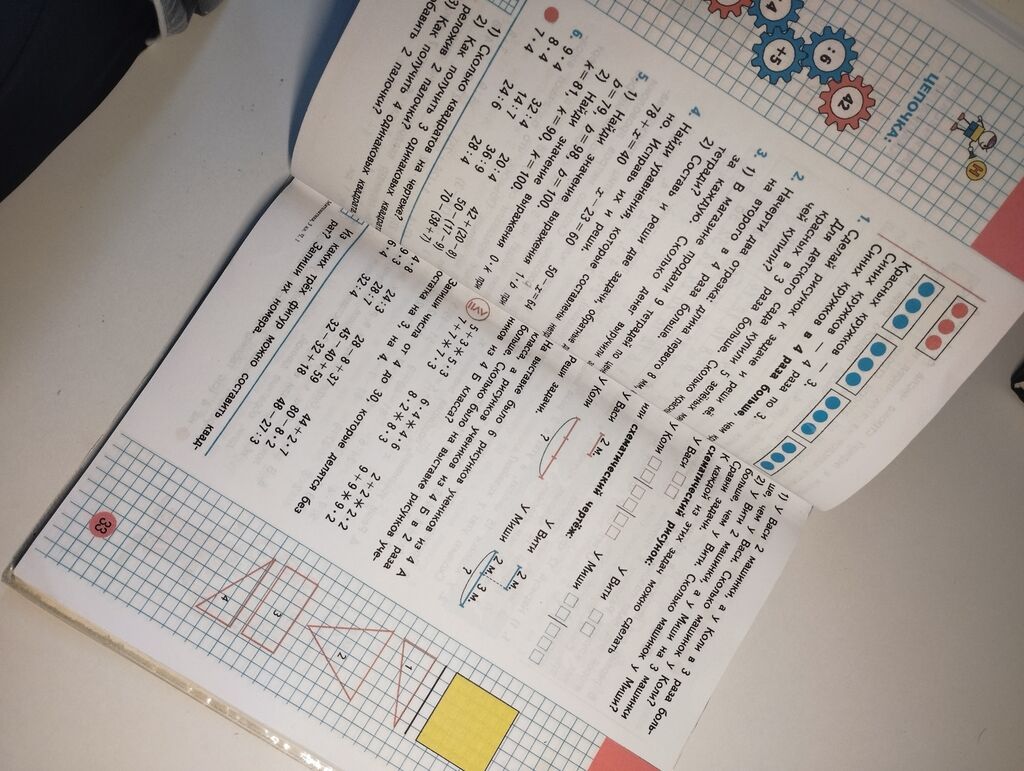 ЦЕПОЧКА:
М
42
:6
+5
4
Красных кружков — 3.
Синих кружков — 4 раза по 3.
Синих кружков в 4 раза больше, чем
красных
1. Сделай рисунок к задаче и реши её.
Для детского сада купили 5 зелёных мячей,
в 3 раза больше. Сколько
чей купили?
2. Начерти два отрезка: длина первого 8
на второго в 4 раза больше.
3. 1) В магазине продали 9 тетрадей по
за каждую. Сколько денег выручили
тетради?
2) Составь и реши две задачи, обратные
4. Найди уравнения, которые составлены
но. Исправь их и реши.
78 + x = 40
x − 23 = 60
50 − x =
5. 1) Найди значение выражения 1 · b при
b = 79, b = 98, b = 100.
2) Найди значение выражения 0 · k
k = 81, k = 90, k = 100.
6. 9 · 4
8 · 4
7 · 4
32 : 4
14 : 7
24 : 6
20 : 4
36 : 9
28 : 4
42 + (20 − 8)
50 − (17 − 9)
70 − (38 + 7)
1) Сколько квадратов на чертеже?
2) Как получить 3 одинаковых квадрата,
реложив 2 палочки?
3) Как получить 4 одинаковых квадрата
бавить 2 палочки?
1) У Васи 2 машинки, а у Коли в 3 раза боль-
ше, чем у Васи. Сколько машинок у Коли?
2) У Вити 2 машинки, а у Миши на 3 машинки
больше, чем у Вити. Сколько машинок у Миши?
Сравни задачи.
К каждой из этих задач можно сделать
схематический рисунок:
У Васи
У Коли
У Вити
У Миши
или схематический чертёж:
У Васи
2 м.
У Коли
?
У Вити
2 м.
У Миши
2 м.
3 м.
?
Реши задачи.
На выставке было 6 рисунков учеников из 4 А
класса, а рисунков учеников из 4 Б в 2 раза
больше. Сколько было на выставке рисунков уче-
ников из 4 Б класса?
5 + 3 * 5 · 3
6 · 4 * 4 · 6
8 · 2 * 8 + 3
2 + 2 * 2 · 2
9 + 9 * 9 · 2
Запиши числа от 4 до 30, которые делятся без
остатка на 3, на 4
24 : 3
28 : 7
32 : 4
28 − 8 + 37
45 − 40 + 59
32 − 32 + 18
44 + 2 · 7
80 − 8 · 2
48 − 27 : 3
Из каких трёх фигур можно составить квад-
рат? Запиши их номера.
1
2
3
4
33